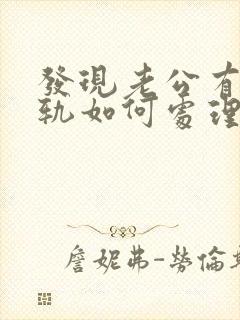 發現老公有
軌如何處理
詹妮弗-勞倫